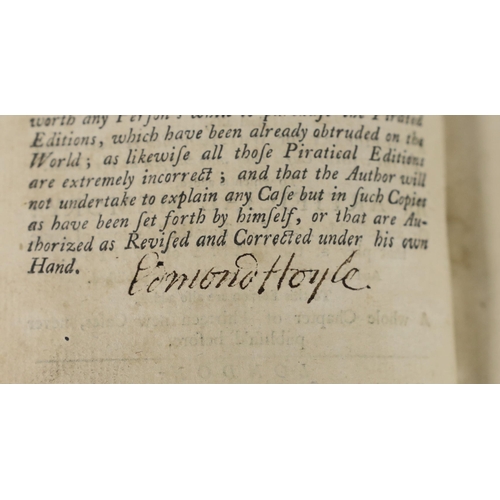 worth any Person's while to purchase the Pirated
Editions, which have been already obtruded on the
World; as likewiſe all thoſe Piratical Editions
are extremely incorrect; and that the Author will
not undertake to explain any Caſe but in ſuch Copies
as have been ſet forth by himſelf, or that are Au-
thorized as Reviſed and Corrected under his own
Hand.
Edmond Hoyle.